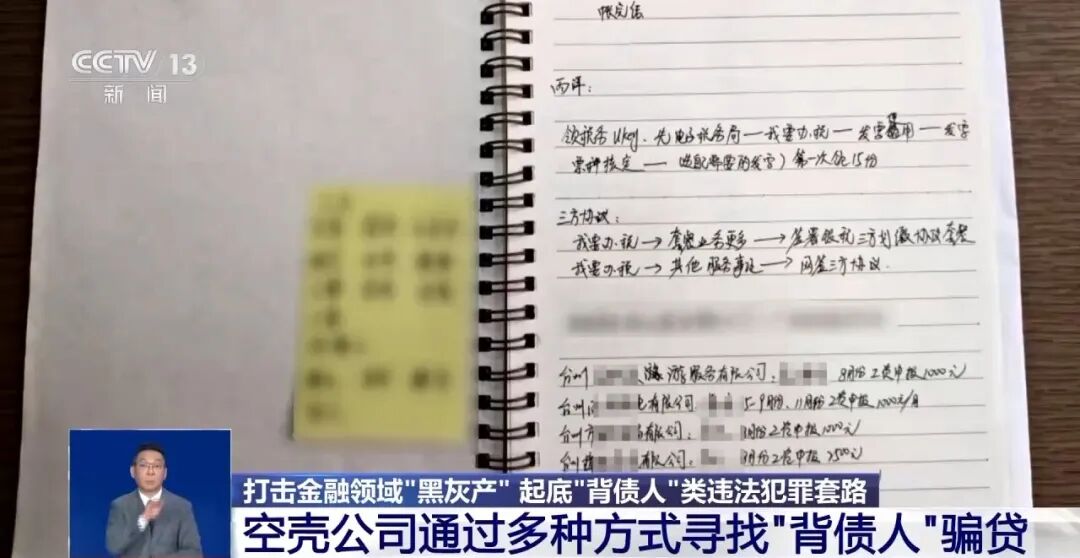 CCTV 13
新闻
两证:
领税务Ukey、先电子税务局—我要办税—发票使用—发票
票种核定—选配需要的发票)第一次领15份
三方协议:
我要办税→套餐业务更多→签署银税三方划缴协议套餐
我要办税→其他服务事项→网签三方协议.
台州 旅游服务有限公司: 8月份工资申报1000元
台州 有限公司 5-9月份、11月份工资申报1000元/月
台州市 有限公司: 8月份工资申报1000元
台州 有限公司: 8月份工资申报7500元
打击金融领域"黑灰产" 起底"背债人"类违法犯罪套路
空壳公司通过多种方式寻找"背债人"骗贷